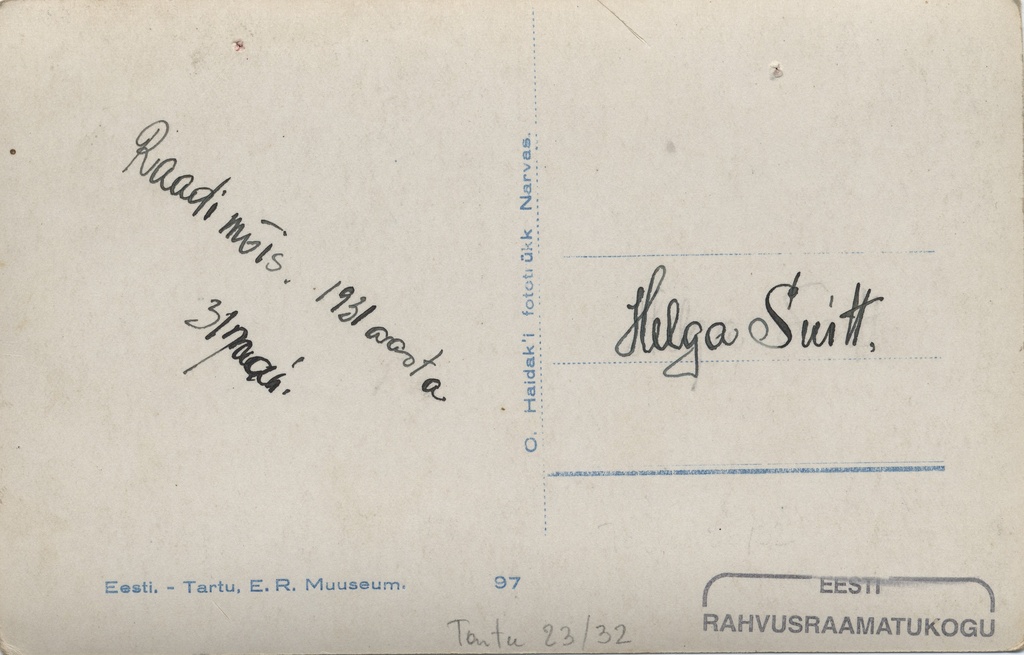 Raadi mõis. 1931 aasta
31 mai.
O. Haidak'i fototrükk Narvas.
Helga Suitt.
Eesti. - Tartu, E. R. Muuseum.
97
Tartu 23/32
EESTI
RAHVUSRAAMATUKOGU